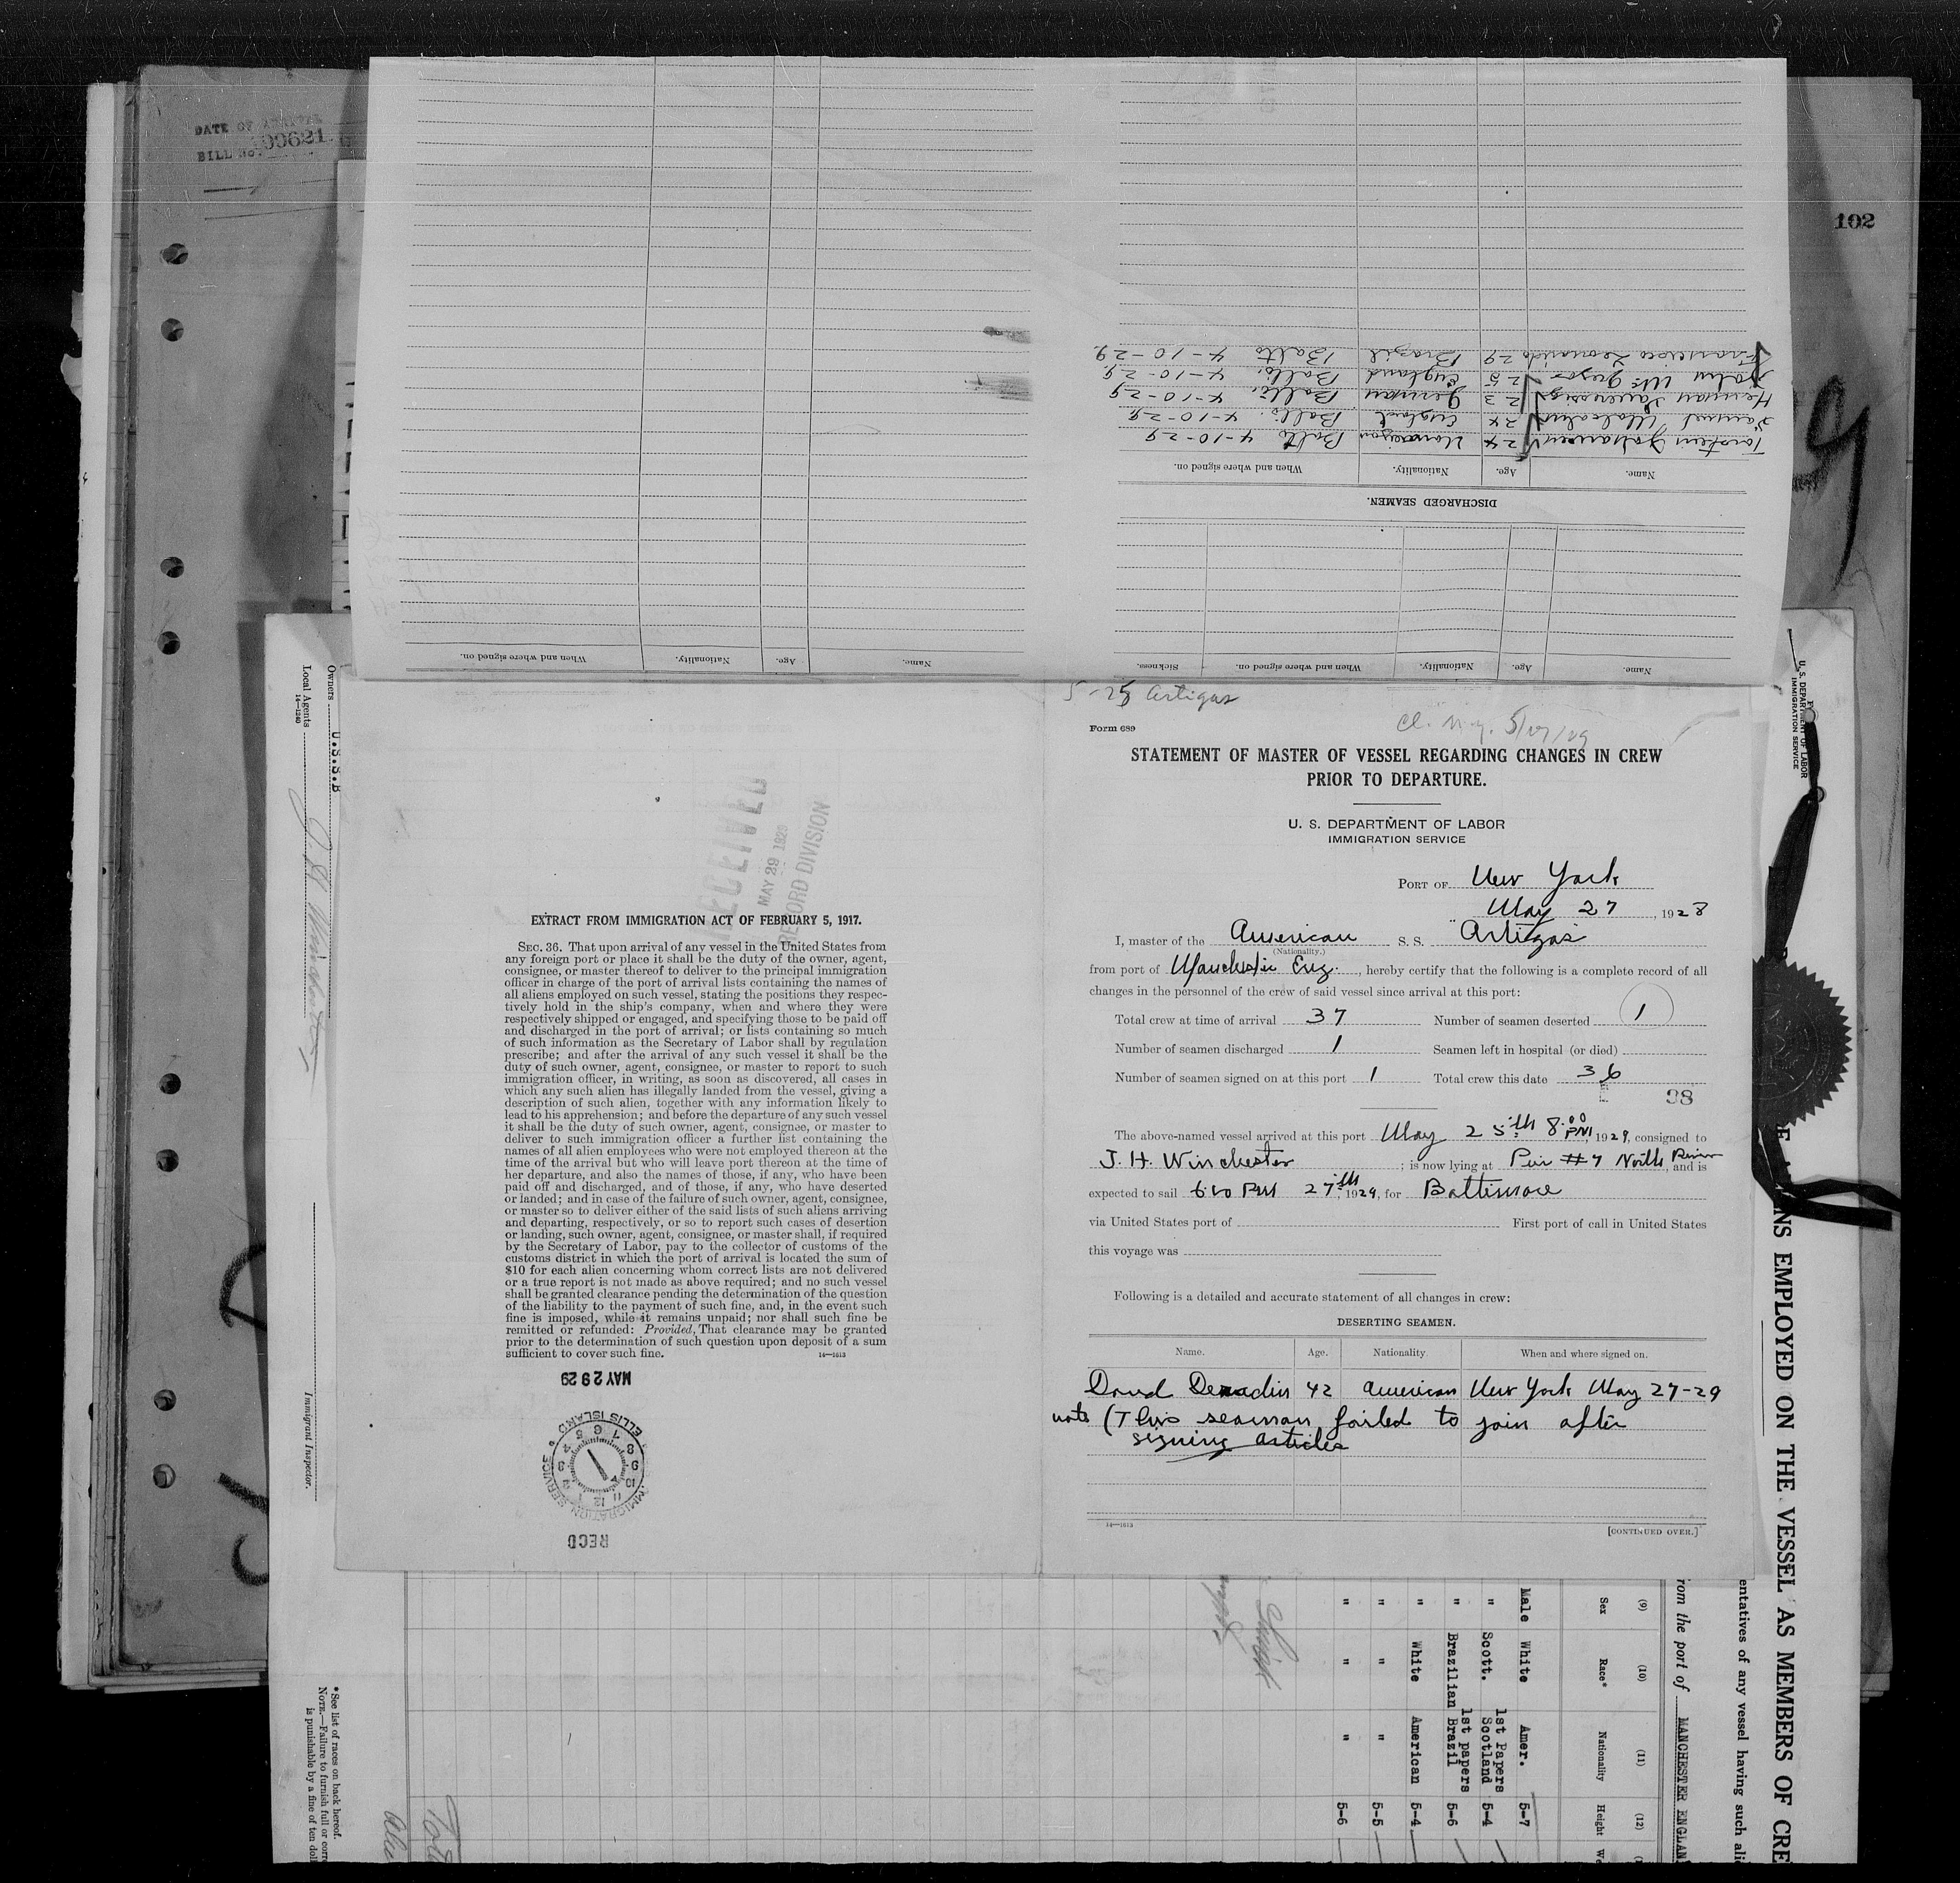 DATE OF
BILL No. 09621
102
Name. Age. Nationality. When and where signed on.
Name. Age. Nationality. When and where signed on. Sickness.
DISCHARGED SEAMEN.
Name. Age. Nationality. When and where signed on.
Torstein Johansen 24 Norwegian Balto 4-10-29
Samuel Malcolm 24 England Balto. 4-10-29
Herman 23 German Balto. 4-10-29
John McGregor 25 England Balto. 4-10-29
Francisco Leonardo 29 Brazil Balto 4-10-29.
5-25 Artigas
Form 689
STATEMENT OF MASTER OF VESSEL REGARDING CHANGES IN CREW
PRIOR TO DEPARTURE.
U. S. DEPARTMENT OF LABOR
IMMIGRATION SERVICE
PORT OF New York
May 27, 1928
I, master of the American S. S. "Artigas"
(Nationality.)
from port of Manchester Eng., hereby certify that the following is a complete record of all
changes in the personnel of the crew of said vessel since arrival at this port:
Total crew at time of arrival 37 Number of seamen deserted 1
Number of seamen discharged 1 Seamen left in hospital (or died)
Number of seamen signed on at this port 1 Total crew this date 36
38
The above-named vessel arrived at this port May 25th 8.00 PM, 1929, consigned to
J. H. Winchester; is now lying at Pier #7 North River, and is
expected to sail 6:00 PM 27th, 1929, for Baltimore
via United States port of First port of call in United States
this voyage was
Following is a detailed and accurate statement of all changes in crew:
DESERTING SEAMEN.
Name. Age. Nationality. When and where signed on.
David 42 American New York May 27-29
note (This seaman failed to join after
signing articles
14—1613
[CONTINUED OVER.]
RECEIVED
MAY 29 1929
RECORD DIVISION
EXTRACT FROM IMMIGRATION ACT OF FEBRUARY 5, 1917.
SEC. 36. That upon arrival of any vessel in the United States from
any foreign port or place it shall be the duty of the owner, agent,
consignee, or master thereof to deliver to the principal immigration
officer in charge of the port of arrival lists containing the names of
all aliens employed on such vessel, stating the positions they respec-
tively hold in the ship's company, when and where they were
respectively shipped or engaged, and specifying those to be paid off
and discharged in the port of arrival; or lists containing so much
of such information as the Secretary of Labor shall by regulation
prescribe; and after the arrival of any such vessel it shall be the
duty of such owner, agent, consignee, or master to report to such
immigration officer, in writing, as soon as discovered, all cases in
which any such alien has illegally landed from the vessel, giving a
description of such alien, together with any information likely to
lead to his apprehension; and before the departure of any such vessel
it shall be the duty of such owner, agent, consignee, or master to
deliver to such immigration officer a further list containing the
names of all alien employees who were not employed thereon at the
time of the arrival but who will leave port thereon at the time of
her departure, and also the names of those, if any, who have been
paid off and discharged, and of those, if any, who have deserted
or landed; and in case of the failure of such owner, agent, consignee,
or master so to deliver either of the said lists of such aliens arriving
and departing, respectively, or so to report such cases of desertion
or landing, such owner, agent, consignee, or master shall, if required
by the Secretary of Labor, pay to the collector of customs of the
customs district in which the port of arrival is located the sum of
$10 for each alien concerning whom correct lists are not delivered
or a true report is not made as above required; and no such vessel
shall be granted clearance pending the determination of the question
of the liability to the payment of such fine, and, in the event such
fine is imposed, while it remains unpaid; nor shall such fine be
remitted or refunded: Provided, That clearance may be granted
prior to the determination of such question upon deposit of a sum
sufficient to cover such fine.
14—1613
MAY 29 29
IMMIGRATION SERVICE ELLIS ISLAND
RECD
Owners U.S.S.B
Local Agents J. H. Winchester
14—1240
Immigrant Inspector.
*See list of races on back hereof.
NOTE.—Failure to furnish full or
is punishable by a fine of ten
U. S. DEPARTMENT OF LABOR
IMMIGRATION SERVICE
EMPLOYED ON THE VESSEL AS MEMBERS OF
entatives of any vessel having such
from the port of MANCHESTER ENGLAN
(9) (10) (11) (12)
Sex Race* Nationality Height
Male White Amer. 5-7
" Scott. 1st Papers Scotland 5-4
" Brazilian 1st papers Brazil 5-6
" White American 5-4
" " " 5-5
" " " 5-6